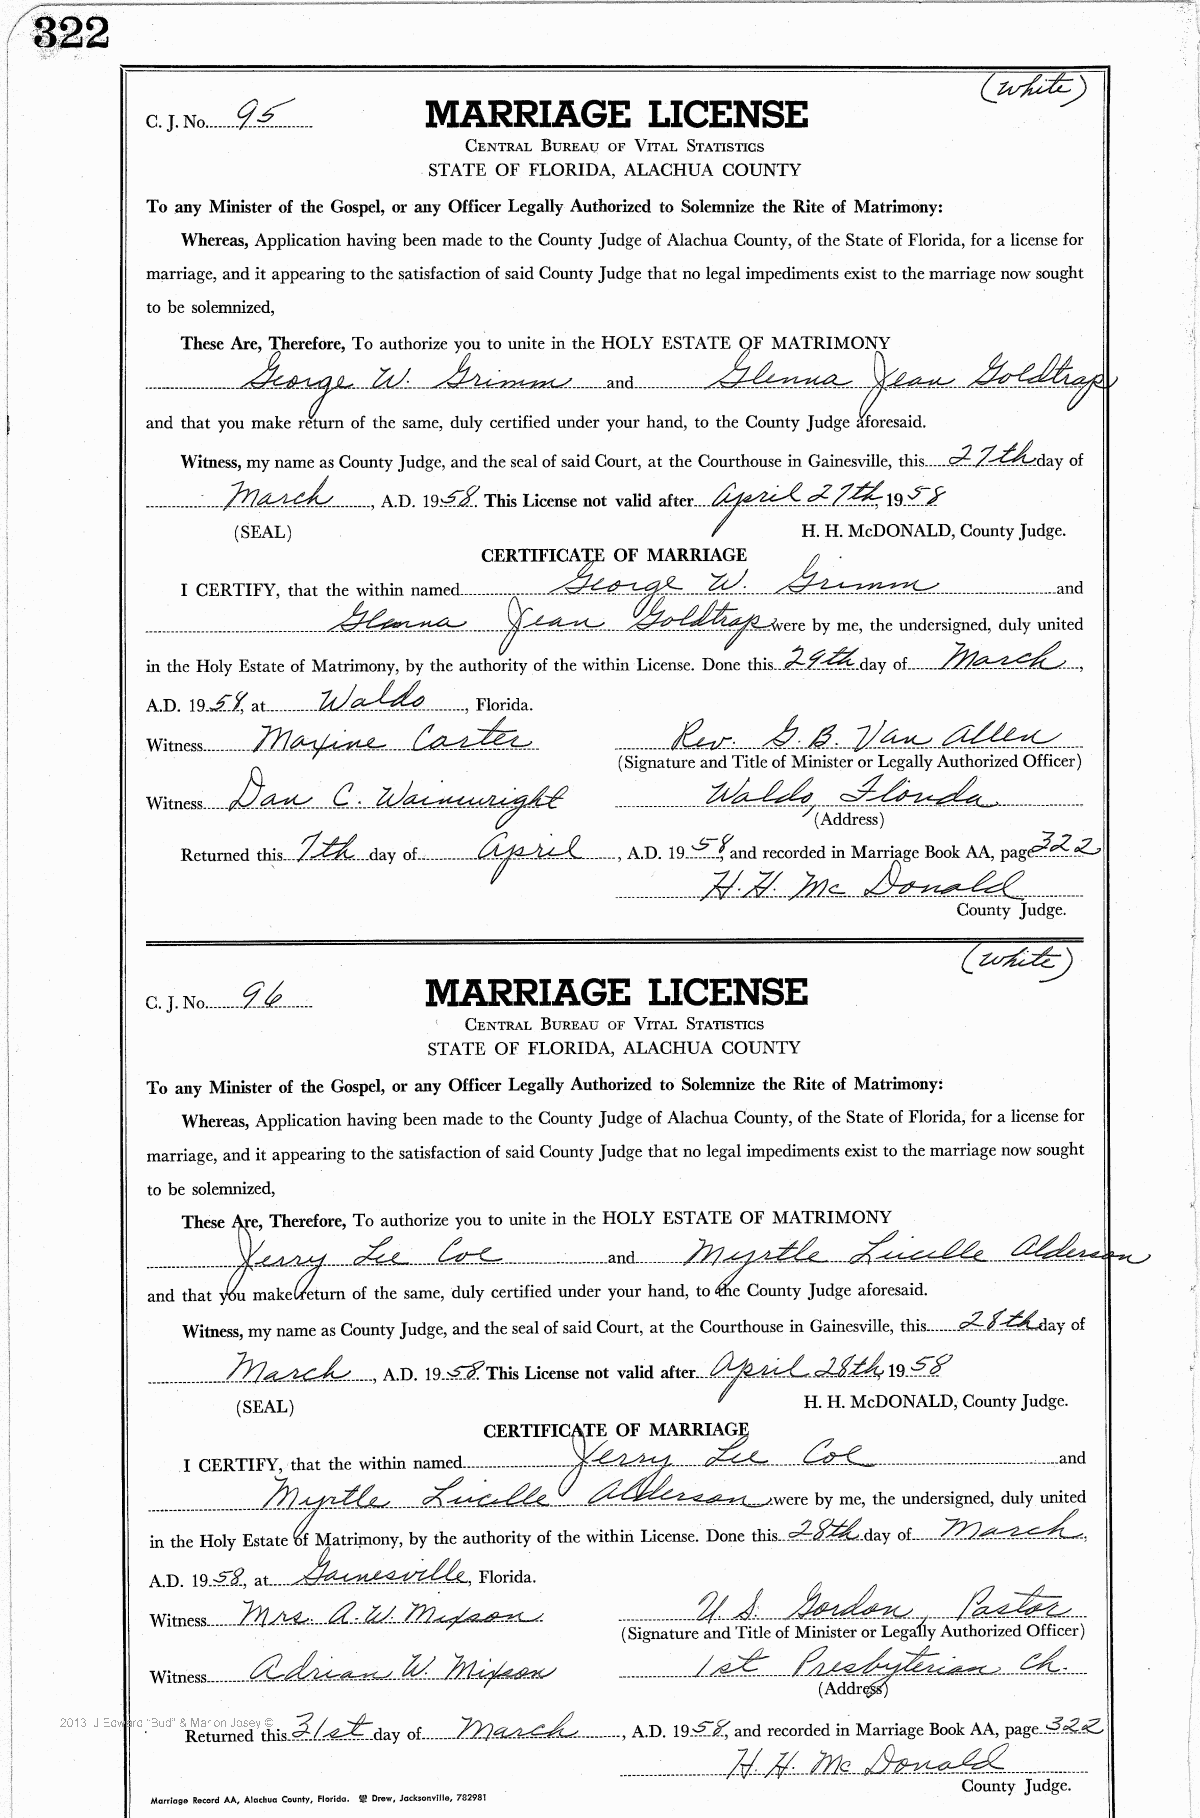 322
(White)
C. J. No. 95
MARRIAGE LICENSE
CENTRAL BUREAU OF VITAL STATISTICS
STATE OF FLORIDA, ALACHUA COUNTY
To any Minister of the Gospel, or any Officer Legally Authorized to Solemnize the Rite of Matrimony:
Whereas, Application having been made to the County Judge of Alachua County, of the State of Florida, for a license for
marriage, and it appearing to the satisfaction of said County Judge that no legal impediments exist to the marriage now sought
to be solemnized,
These Are, Therefore, To authorize you to unite in the HOLY ESTATE OF MATRIMONY
George W. Grimm and Glenna Jean Goldtrap
and that you make return of the same, duly certified under your hand, to the County Judge aforesaid.
Witness, my name as County Judge, and the seal of said Court, at the Courthouse in Gainesville, this 27th day of
March, A.D. 1958. This License not valid after April 27th, 1958
(SEAL) H. H. McDONALD, County Judge.
CERTIFICATE OF MARRIAGE
I CERTIFY, that the within named George W. Grimm and
Glenna Jean Goldtrap were by me, the undersigned, duly united
in the Holy Estate of Matrimony, by the authority of the within License. Done this 29th day of March,
A.D. 1958, at Waldo, Florida.
Witness Maxine Carter Rev. G. B. Van Allen
(Signature and Title of Minister or Legally Authorized Officer)
Witness Dan C. Wainwright Waldo, Florida
(Address)
Returned this 7th day of April, A.D. 1958, and recorded in Marriage Book AA, page 322
H. H. Mc Donald
County Judge.
(White)
C. J. No. 96
MARRIAGE LICENSE
CENTRAL BUREAU OF VITAL STATISTICS
STATE OF FLORIDA, ALACHUA COUNTY
To any Minister of the Gospel, or any Officer Legally Authorized to Solemnize the Rite of Matrimony:
Whereas, Application having been made to the County Judge of Alachua County, of the State of Florida, for a license for
marriage, and it appearing to the satisfaction of said County Judge that no legal impediments exist to the marriage now sought
to be solemnized,
These Are, Therefore, To authorize you to unite in the HOLY ESTATE OF MATRIMONY
Jerry Lee Coe and Myrtle Lucille Alderson
and that you make return of the same, duly certified under your hand, to the County Judge aforesaid.
Witness, my name as County Judge, and the seal of said Court, at the Courthouse in Gainesville, this 28th day of
March, A.D. 1958. This License not valid after April 28th, 1958
(SEAL) H. H. McDONALD, County Judge.
CERTIFICATE OF MARRIAGE
I CERTIFY, that the within named Jerry Lee Coe and
Myrtle Lucille Alderson were by me, the undersigned, duly united
in the Holy Estate of Matrimony, by the authority of the within License. Done this 28th day of March,
A.D. 1958, at Gainesville, Florida.
Witness Mrs. A. W. Mixson U. S. Gordon, Pastor
(Signature and Title of Minister or Legally Authorized Officer)
Witness Adrian W. Mixson 1st Presbyterian Ch.
(Address)
2013 J Edward "Bud" & Marion Josey ©
Returned this 31st day of March, A.D. 1958, and recorded in Marriage Book AA, page 322
H. H. Mc Donald
County Judge.
Marriage Record AA, Alachua County, Florida. Drew, Jacksonville, 782981